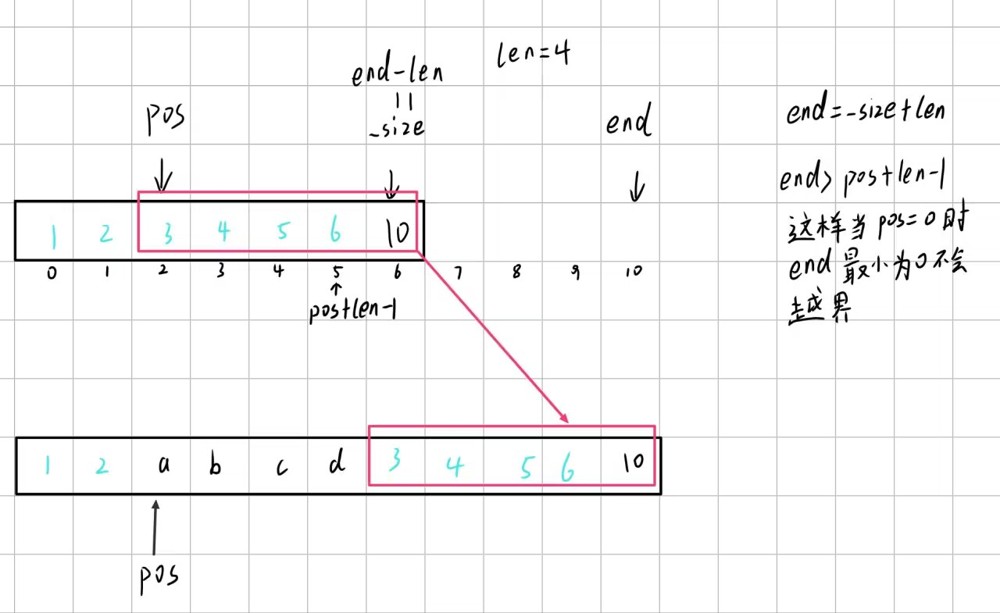 len=4
end-len
||
_size
pos
end
1 2 3 4 5 6 10
0 1 2 3 4 5 6 7 8 9 10
pos+len-1
end=_size+len
end> pos+len-1
这样当pos=0时
end最小为0不会
越界
1 2 a b c d 3 4 5 6 10
pos